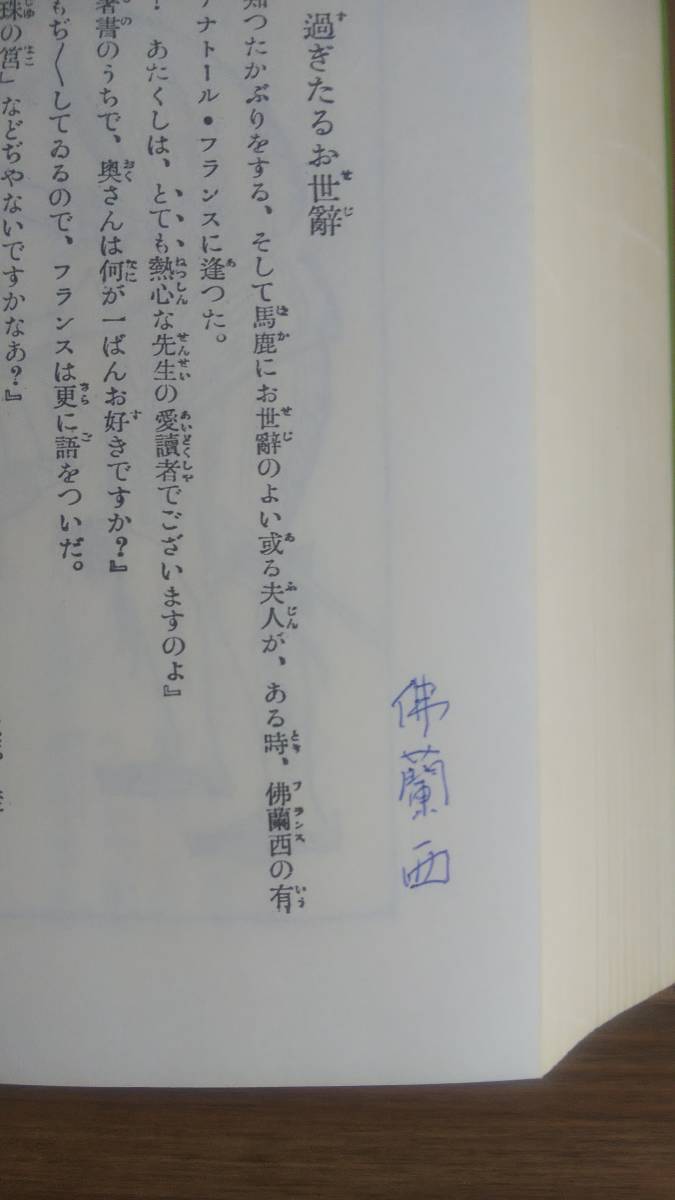 過ぎたるお世辭
知つたかぶりをする、そして馬鹿にお世辭のよい或る夫人が、ある時、佛蘭西の有
アナトール・フランスに逢つた。
！ あたくしは、とても熱心な先生の愛讀者でございますのよ』
著書のうちで、奥さんは何が一ばんお好きですか？』
もぢ〳〵してゐるので、フランスは更に語をついだ。
珠の筥」などぢやないですかなあ？』
佛蘭西